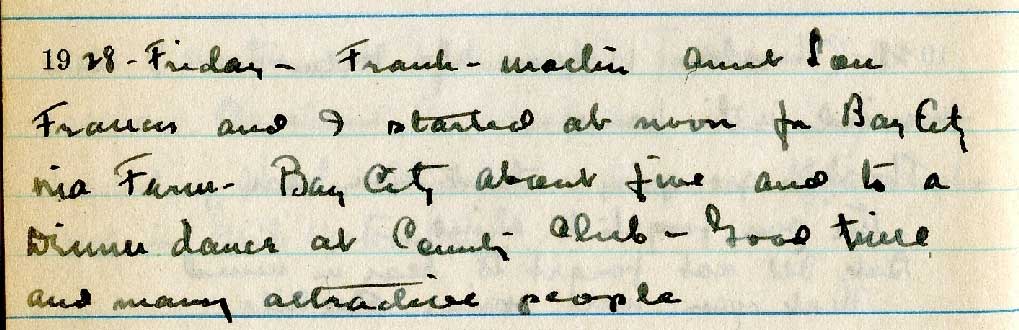 1928 - Friday - Frank - Martin Aunt Lou
Frances and I started at noon for Bay City
via Farm - Bay City about five and to a
Dinner dance at County Club - Good time
and many attractive people